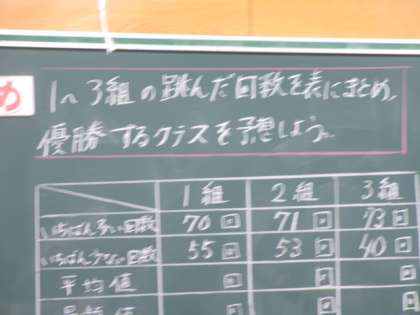 め
1〜3組の跳んだ回数を表にまとめ、
優勝するクラスを予想しよう。
1組 2組 3組
いちばん多い回数 70回 71回 73回
いちばん少ない回数 55回 53回 40回
平均値 回 回 回
回 回 回